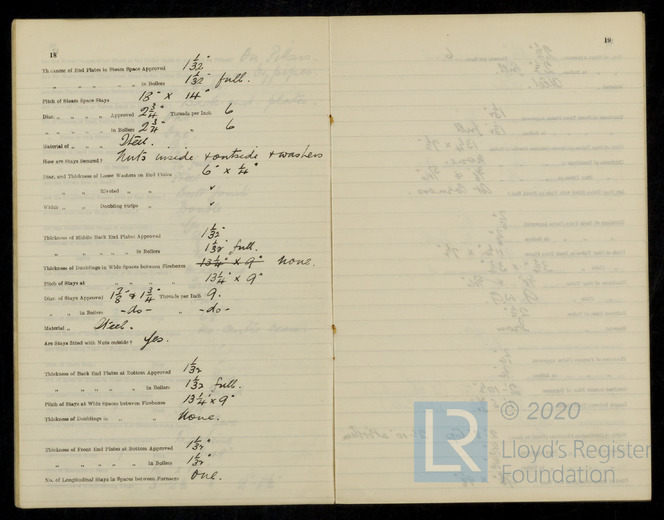 18
Thickness of End Plates in Steam Space Approved 1 1/32"
" " " " " in Boilers 1 1/32" full.
Pitch of Steam Space Stays 18" x 14"
Diar. " " " Approved 2 3/4" Threads per Inch 6
" " " " in Boilers 2 3/4" " 6
Material of " " " Steel.
How are Stays Secured? Nuts inside & outside & washers
Diar. and Thickness of Loose Washers on End Plates 6" x 1/4"
" " " Riveted " "
Width " " Doubling Strips "
Thickness of Middle Back End Plates Approved 1/32"
" " " " " in Boilers 1/32" full.
Thickness of Doublings in Wide Spaces between Fireboxes 13 1/4" x 9" None.
Pitch of Stays at " " " " 13 1/4" x 9"
Diar. of Stays Approved 1 7/8 & 1 3/4" Threads per Inch 9.
" " in Boilers -do- " -do-
Material " Steel.
Are Stays fitted with Nuts outside? Yes.
Thickness of Back End Plates at Bottom Approved 1/32
" " " " " in Boilers 1/32 full.
Pitch of Stays at Wide Spaces between Fireboxes 13 1/4" x 9"
Thickness of Doublings in " " None.
Thickness of Front End Plates at Bottom Approved 1/32"
" " " " " in Boilers 1/32"
No. of Longitudinal Stays in Spaces between Furnaces One.
19
© 2020
LR
Lloyd's Register
Foundation